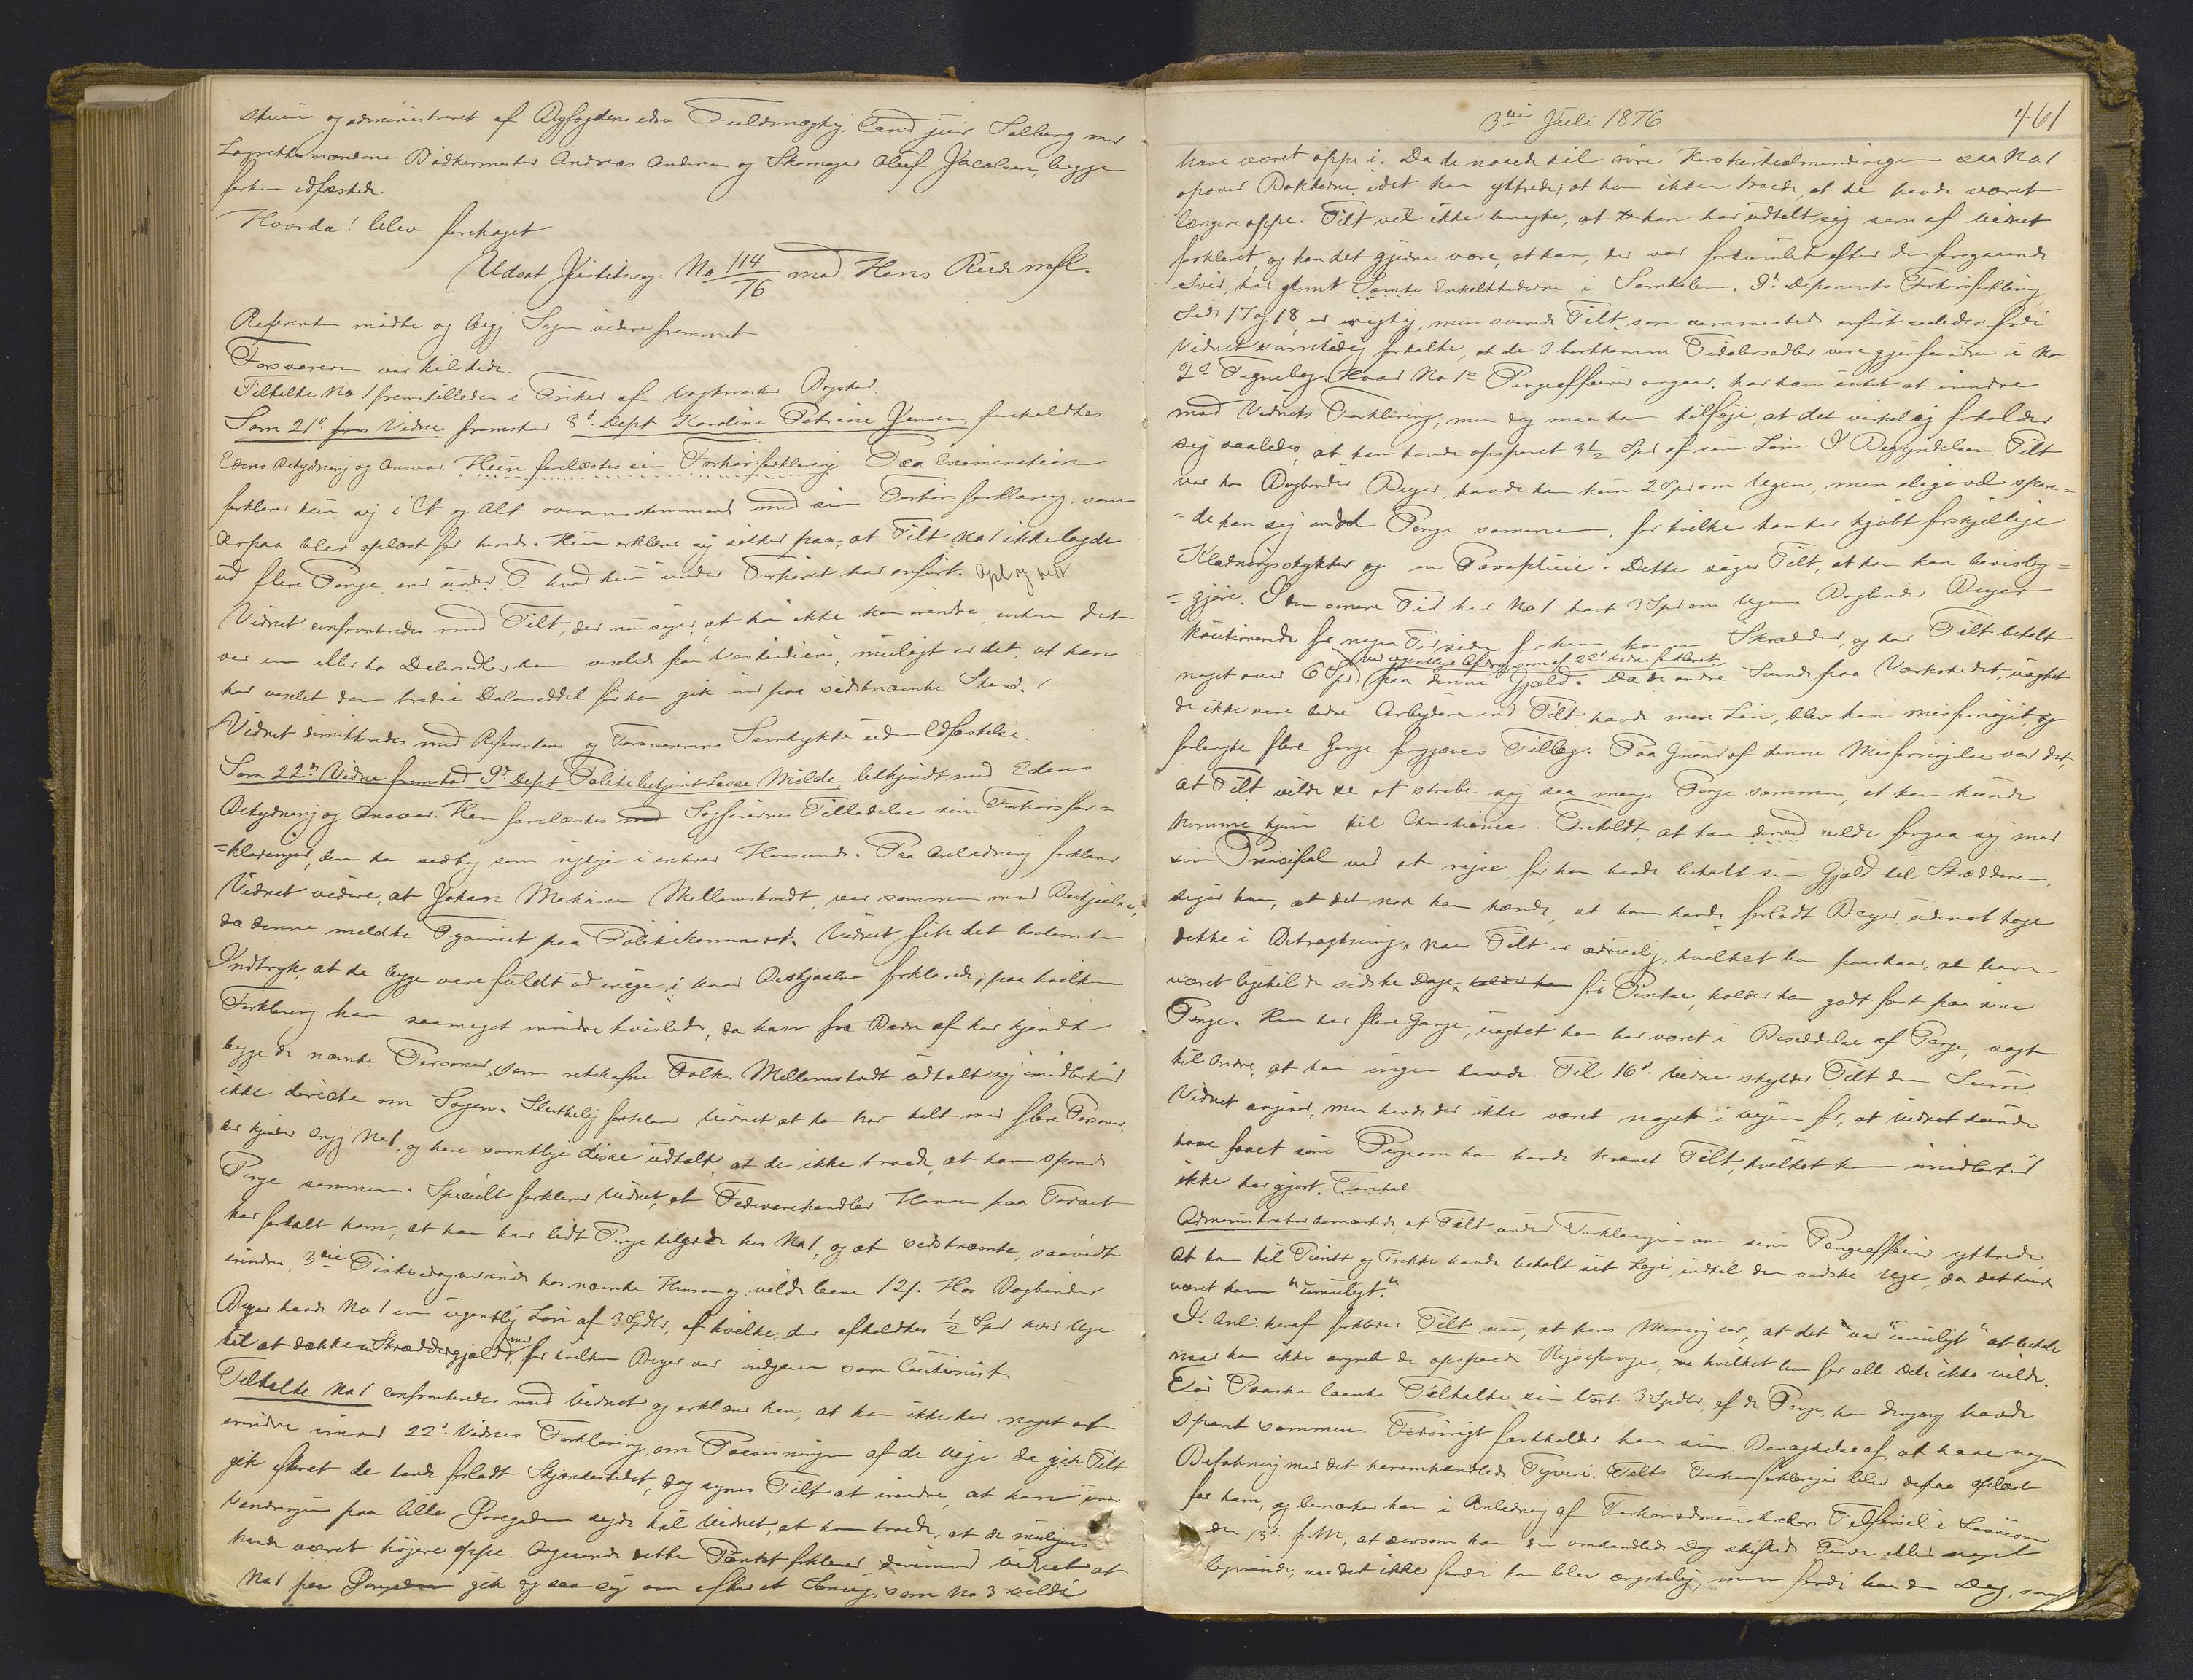 stuen og administreret af Byfogdens edsv. Fuldmægtig, Cand jur Solberg med
Lagrettesmændene Bødkermester Andreas Andersen og Skomager Oluf Jacobsen, begge
forhen edfæstede.
Hvorda! blev foretaget
Udsat Justitssag. No 114/76 mod Hans Ruud mfl.
Referenten mødte og begj Sagen videre fremmet
Forsvareren var tilstede.
Tiltalte No 1 fremstilledes i Frihed af Vagtmester
Som 21de Vidne fremstod 8d. Dept Karoline Petrine Jensen, foreholdtes
Edens Betydning og Ansvar. Hun forelæstes sin Forhørsforklaring Paa Examination
forklarer hun sig i Et og Alt overensstemmende med sin Forhørsforklaring, som
derpaa blev oplæst for hende. Hun erklærer sig sikker paa, at Tilt No 1 ikke lagde
ud flere Penge, end hvad hun under Forhøret har anført. Opl og vedt
Vidnet confronteredes med Tilt, der nu siger, at han ikke kan erindre, enten det
var en eller to Dalersedler han vexlede paa "Vestindien", muligt er det, at han
har vexlet den tredie Dalerseddel før han gik ind paa sidstnævnte Sted.
Vidnet dimitteredes med Referentens og Forsvarerens Samtykke uden Edfæstelse.
Som 22de Vidne fremstod 9d. Dept Politibetjent Lasse Milde bekjendt med Edens
Betydning og Ansvar. Han forelæstes med Sagførernes Tilladelse sine Forhørsfor=
=klaringer, dem han vedtog som rigtige i enhver Henseende. Paa Anledning forklarer
Vidnet videre, at Johan Mathisen Mellomstvedt, var sammen med Berkjælen,
da denne meldte Tyveriet paa Politikammeret. Vidnet fik det bestemte
Indtryk, at de begge vare fuldt ud enige i hvad Berkjælen forklarede; paa hvilken
Forklaring han saameget mindre tvivlede, da han fra Barn af har kjendt
begge de nævnte Personer, som retskafne Folk. Mellomstvedt udtalte sig imidlertid
ikke direkte om Sagen. Sluttelig forklarer Vidnet at han har talt med flere Personer,
der kjender Angj No 1, og have samtlige disse udtalt, at de ikke troede, at han sparede
Penge sammen. Specielt forklarer Vidnet, at Fedevarehandler Hansen paa Torvet
har fortalt ham, at han har lidt Penge tilgode hos No 1, og at sidstnævnte, saavidt
erindres, 3die Pintsedag var inde hos nævnte Hansen og vilde laane 12 s. Hos Bogbinder
Beyer havde No 1 en ugentlig Løn af 3 Spdlr, af hvilke der afholdtes 1/2 Spd hver Uge
til at dække en Skræddergjæld med, for hvilken Beyer var indgaaen som Cautionist.
Tiltalte No 1 confronteredes med Vidnet og erklærer han, at han ikke har noget at
erindre imod 22d. Vidnes Forklaring, om Paavisningen af de Veje de gik Tilt
gik efterat de havde forladt Skjænkestedet, dog synes Tilt at erindre, at han under
Vandringen paa lille sagde til Vidnet, at han troede, at de muligens
havde været høiere oppe. Angaaende dette Punkt forklarer derimod Vidnet at
No 1 paa gik og saa sig om efter et som No 3 vilde
3die Juli 1876
461
have været oppe i. Da de naaede til øvre saa No 1
opover Bakkerne, idet han yttrede, at han ikke troede, at de havde været
længere oppe. Tilt vil ikke benegte, at han har udtalt sig som af Vidnet
forklaret, og kan det gjerne være, at han, der var forkumlet efter den foregaaende
Svir, har glemt Enkelthederne i Samtalen. 9d. Deponents Forhørsforklaring,
Side 17 og 18, er urigtig, men svarede Tilt som sammesteds anført saaledes, fordi
Vidnet samtidig fortalte, at de 3 bortkomne Tidalersedler vare gjenfundne i No
2s Tegnebog. Hvad No 1s Pengeaffærer angaar, har han intet at erindre
mod Vidnets Forklaring, men dog maa han tilføje, at det virkelig forholder
sig saaledes, at han havde opsparet 3 1/2 Spd af sin Løn. I Begyndelsen Tilt
var hos Bogbinder Beyer, havde han kun 2 Spd om Ugen, men alligevel spare=
=de han sig endel Penge sammen, for hvilke han har kjøbt forskjellige
Klædningsstykker og en Paraplui. Dette siger Tilt, at han kan bevislig=
=gjøre. I den senere Tid har No 1 havt 3 Spd om Ugen. Bogbinder Beyer
kautionerede for nogen Tid siden for ham hos en Skrædder, og har Tilt betalt
ved ugentlige Afdrag, som af 22d Vidne forklaret,
noget over 6 Spd paa denne Gjæld. Da de andre Svende paa Værkstedet, uagtet
de ikke vare bedre Arbejdere end Tilt, havde mere Løn, blev han misfornøjet, og
forlangte flere Gange forgjæves Tillæg. Paa Grund af denne Misfornøjelse var det,
at Tilt vilde se at skrabe sig saa mange Penge sammen, at han kunde
komme hjem til Christiania. Foreholdt, at han derved vilde forgaa sig mod
sin Principal ved at rejse før han havde betalt sin Gjæld til Skrædderen,
siger han, at det nok kan hænde, at han havde forladt Beyer, uden at tage
dette i Betragtning. Naar Tilt er ædruelig, hvilket han paastaar, at have
været ligetil de sidste Dage, før Pintse, holder han godt fast paa sine
Penge. Han har flere Gange, uagtet han har været i Besiddelse af Penge, sagt
til Andre, at han ingen havde. Til 16d. Vidne skylder Tilt den Sum
Vidnet angiver, men havde der ikke været noget i Vejen for, at Vidnet kunde
have faaet sine Penge om han havde krævet Tilt, hvilket han imidlertid
ikke har gjort.
Administrator bemærkede, at Tilt under Forklaringen om sine Pengeaffærer yttrede,
at han til Punkt og Prikke havde betalt sit Logi, indtil den sidste Uge, da det havde
været ham "umuligt."
I Anl: heraf forklarer Tilt nu, at hans Mening var, at det "var umuligt" at betale
naar han ikke angreb de opsparede Rejsepenge, hvilket han for alle Dele ikke vilde.
Før Paaske laante Tiltalte sin bort 3 Spdlr, af de Penge, han dengang havde
sparet sammen. Forøvrigt fastholder han sin Benægtelse af, at have nogen
Befatning med det heromhandlede Tyveri. Tilts Forhørsforklaringer blev derpaa oplæst
for ham, og bemærker han i Anledning af Forhørsadministrators Tilførsel i
den 13d. f. M, at dersom han den omhandlede Dag skiftede Farve eller noget
lignende, var det ikke fordi han blev ængstelig, men fordi han den Dag, som